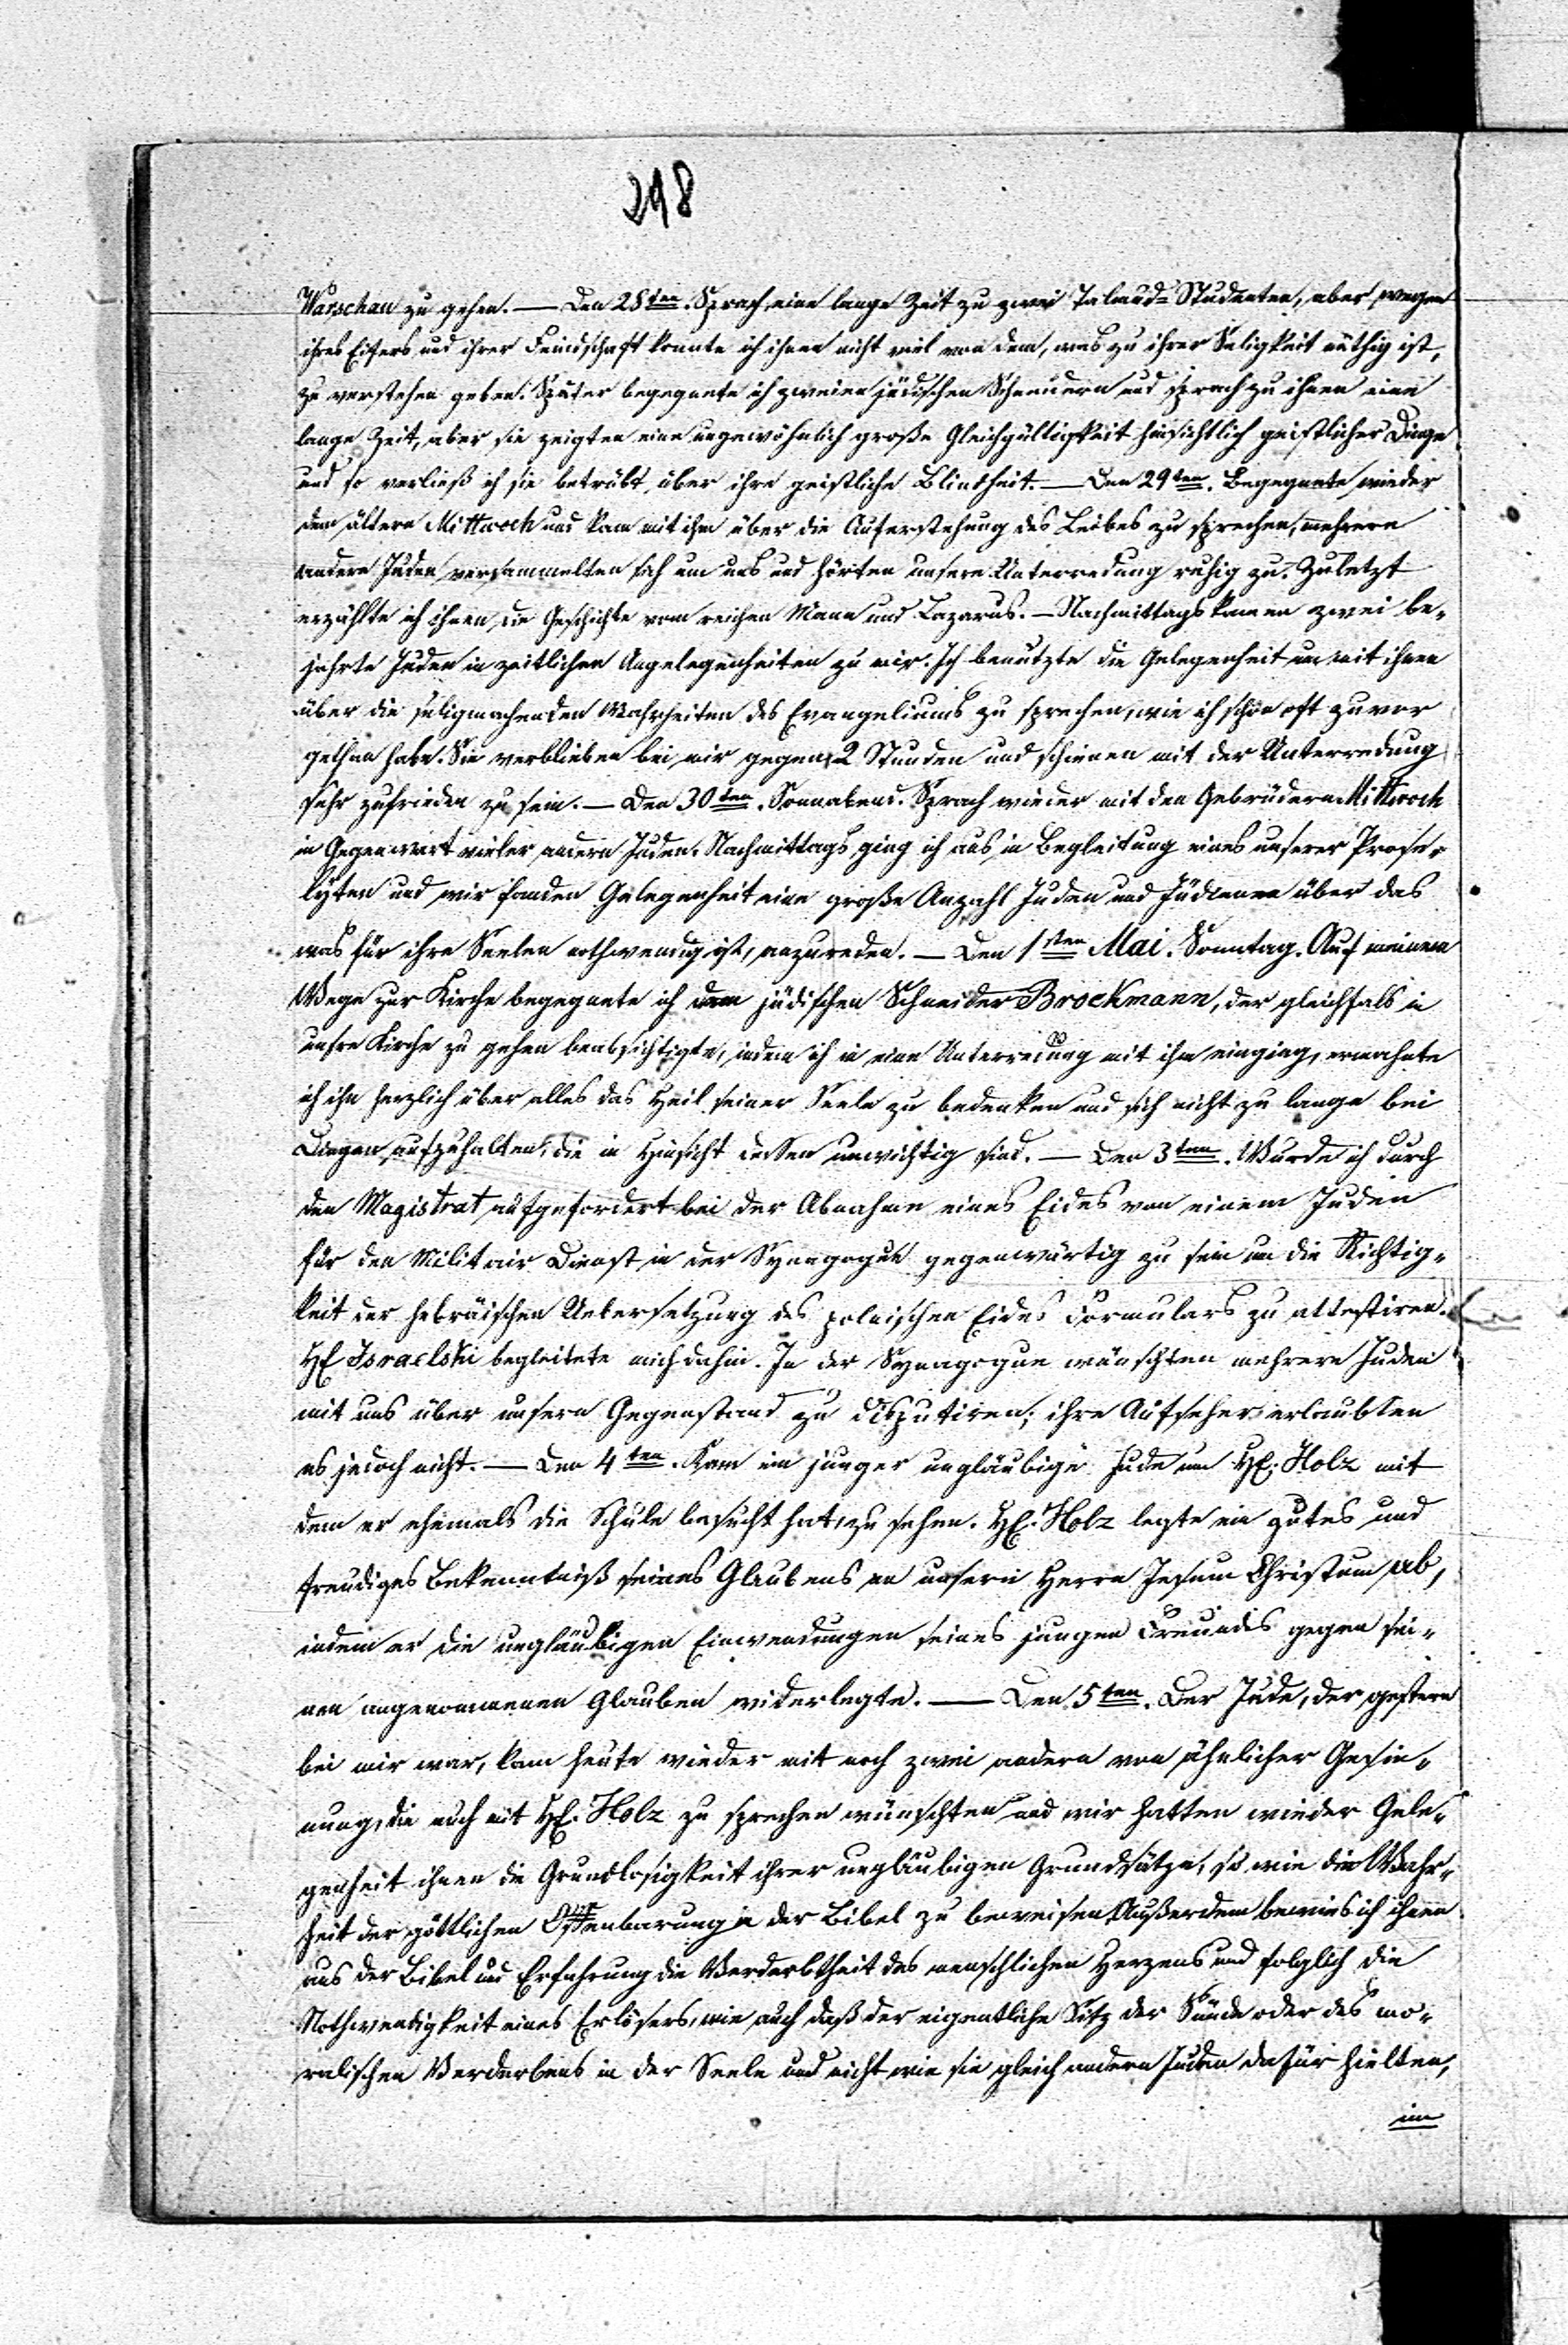 298
Warschau zu gehen. — Den 28ten. Sprach eine lange Zeit zu zwei Talmud-Studenten, aber wegen
ihres Eifers und ihrer Feindschaft konnte ich ihnen nicht viel von dem, was zu ihrer Seligkeit nöthig ist,
zu verstehen geben. Später begegnete ich zweien jüdischen Schneidern und sprach zu ihnen eine
lange Zeit, aber sie zeigten eine ungewöhnlich große Gleichgültigkeit hinsichtlich geistlicher Dinge
und so verließ ich sie betrübt über ihre geistliche Blindheit. — Den 29ten. Begegnete wieder
dem ältern Mittwoch und kam mit ihm über die Auferstehung des Leibes zu sprechen, mehrere
andere Juden versammelten sich um uns und hörten unsere Unterredung ruhig zu. Zuletzt
erzählte ich ihnen die Geschichte vom reichen Mann und Lazarus. — Nachmittags kamen zwei be-
jahrte Juden in zeitlichen Angelegenheiten zu mir. Ich benutzte die Gelegenheit um mit ihnen
über die seligmachenden Wahrheiten des Evangeliums zu sprechen, wie ich schon oft zuvor
gethan habe. Sie verblieben bei mir gegen 2 Stunden und schienen mit der Unterredung
sehr zufrieden zu sein. — Den 30ten. Sonnabend. Sprach wieder mit den Gebrüdern Mittwoch
in Gegenwart vieler andern Juden. Nachmittags ging ich aus in Begleitung eines unserer Prose-
lyten und wir fanden Gelegenheit eine große Anzahl Juden und Jüdinnen über das
was für ihre Seelen nothwendig ist, anzureden. — Den 1sten Mai. Sonntag. Auf meinem
Wege zur Kirche begegnete ich dem jüdischen Schneider Brockmann, der gleichfalls in
unsre Kirche zu gehen beabsichtigte, indem ich in eine Unterredung mit ihm einging, ermahnte
ich ihn herzlich über alles das Heil seiner Seele zu bedenken und sich nicht zu lange bei
Dingen aufzuhalten, die in Hinsicht dessen unwichtig sind. — Den 3ten. Wurde ich durch
den Magistrat aufgefordert bei der Abnahme eines Eides von einem Juden
für den Militair Dienst in der Synagogue gegenwärtig zu sein um die Richtig-
keit der hebräischen Uebersetzung des polnischen Eides Formulars zu attestiren.
H. Israelski begleitete mich dahin. In der Synagogue wünschten mehrere Juden
mit uns über unsern Gegenstand zu disputiren; ihre Aufseher erlaubten
es jedoch nicht. — Den 4ten. Kam ein junger ungläubige Jude um H. Holz mit
dem er ehemals die Schule besucht hat, zu sehen. H. Holz legte ein gutes und
freudiges Bekenntniß seines Glaubens an unsern Herrn Jesum Christum ab,
indem er die ungläubigen Einwendungen seines jungen Freundes gegen sei-
nen angenommenen Glauben widerlegte. — Den 5ten. Der Jude, der gestern
bei mir war, kam heute wieder mit noch zwei andern von ähnlicher Gesin-
nung, die auch mit H. Holz zu sprechen wünschten und wir hatten wieder Gele-
genheit ihnen die Grundlosigkeit ihrer ungläubigen Grundsätze, so wie die Wahr-
heit der göttlichen Offenbarung in der Bibel zu beweisen. Außerdem bewies ich ihnen
aus der Bibel und Erfahrung die Verderbtheit des menschlichen Herzens und folglich die
Nothwendigkeit eines Erlösers, wie auch daß der eigentliche Sitz der Sünde oder des mo-
ralischen Verderbens in der Seele und nicht wie sie gleich andern Juden dafür hielten,
im